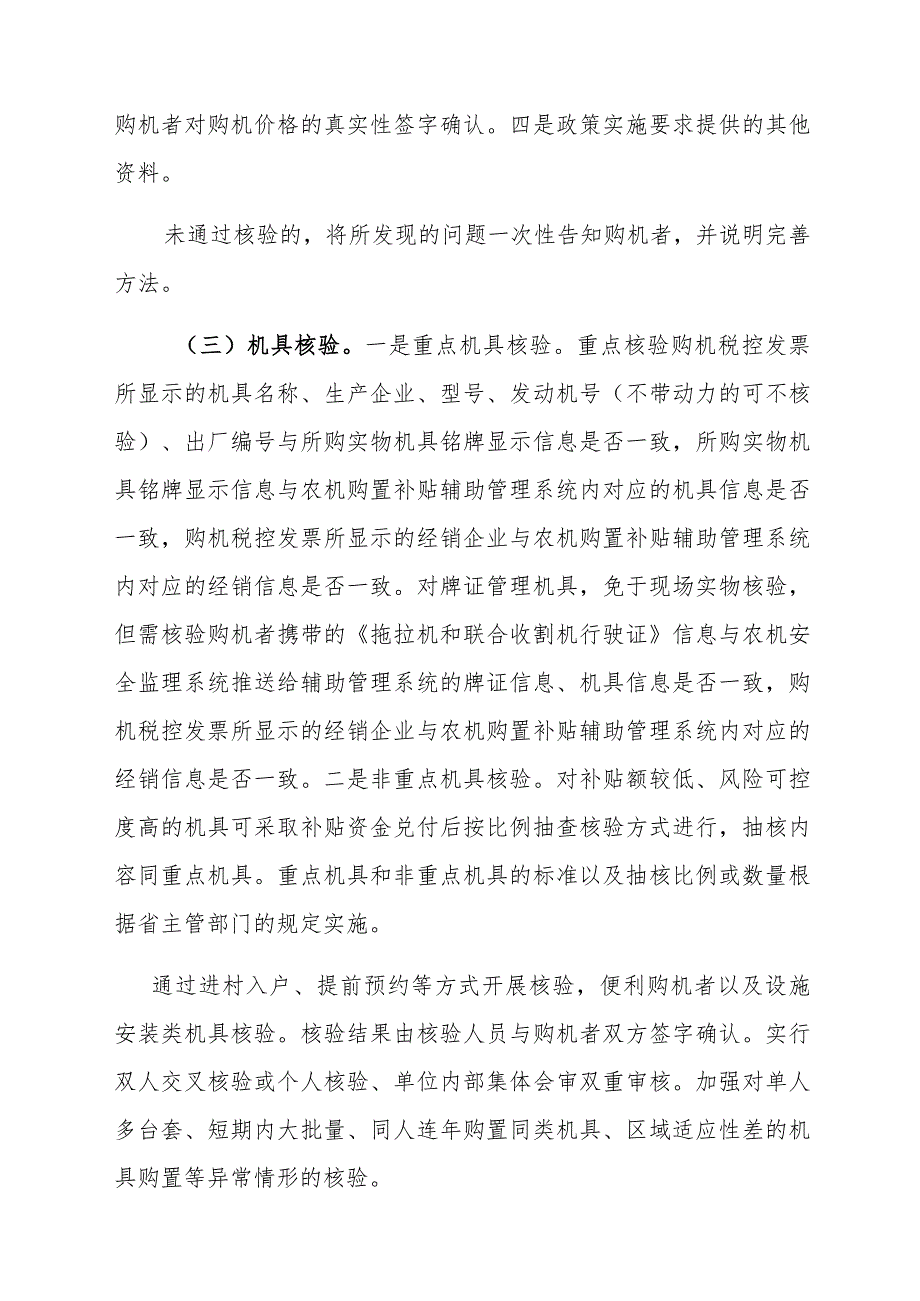 购机者对购机价格的真实性签字确认。四是政策实施要求提供的其他
资料。
未通过核验的，将所发现的问题一次性告知购机者，并说明完善
方法。
（三）机具核验。一是重点机具核验。重点核验购机税控发票
所显示的机具名称、生产企业、型号、发动机号（不带动力的可不核
验）、出厂编号与所购实物机具铭牌显示信息是否一致，所购实物机
具铭牌显示信息与农机购置补贴辅助管理系统内对应的机具信息是否
一致，购机税控发票所显示的经销企业与农机购置补贴辅助管理系统
内对应的经销信息是否一致。对牌证管理机具，免于现场实物核验，
但需核验购机者携带的《拖拉机和联合收割机行驶证》信息与农机安
全监理系统推送给辅助管理系统的牌证信息、机具信息是否一致，购
机税控发票所显示的经销企业与农机购置补贴辅助管理系统内对应的
经销信息是否一致。二是非重点机具核验。对补贴额较低、风险可控
度高的机具可采取补贴资金兑付后按比例抽查核验方式进行，抽核内
容同重点机具。重点机具和非重点机具的标准以及抽核比例或数量根
据省主管部门的规定实施。
通过进村入户、提前预约等方式开展核验，便利购机者以及设施
安装类机具核验。核验结果由核验人员与购机者双方签字确认。实行
双人交叉核验或个人核验、单位内部集体会审双重审核。加强对单人
多台套、短期内大批量、同人连年购置同类机具、区域适应性差的机
具购置等异常情形的核验。